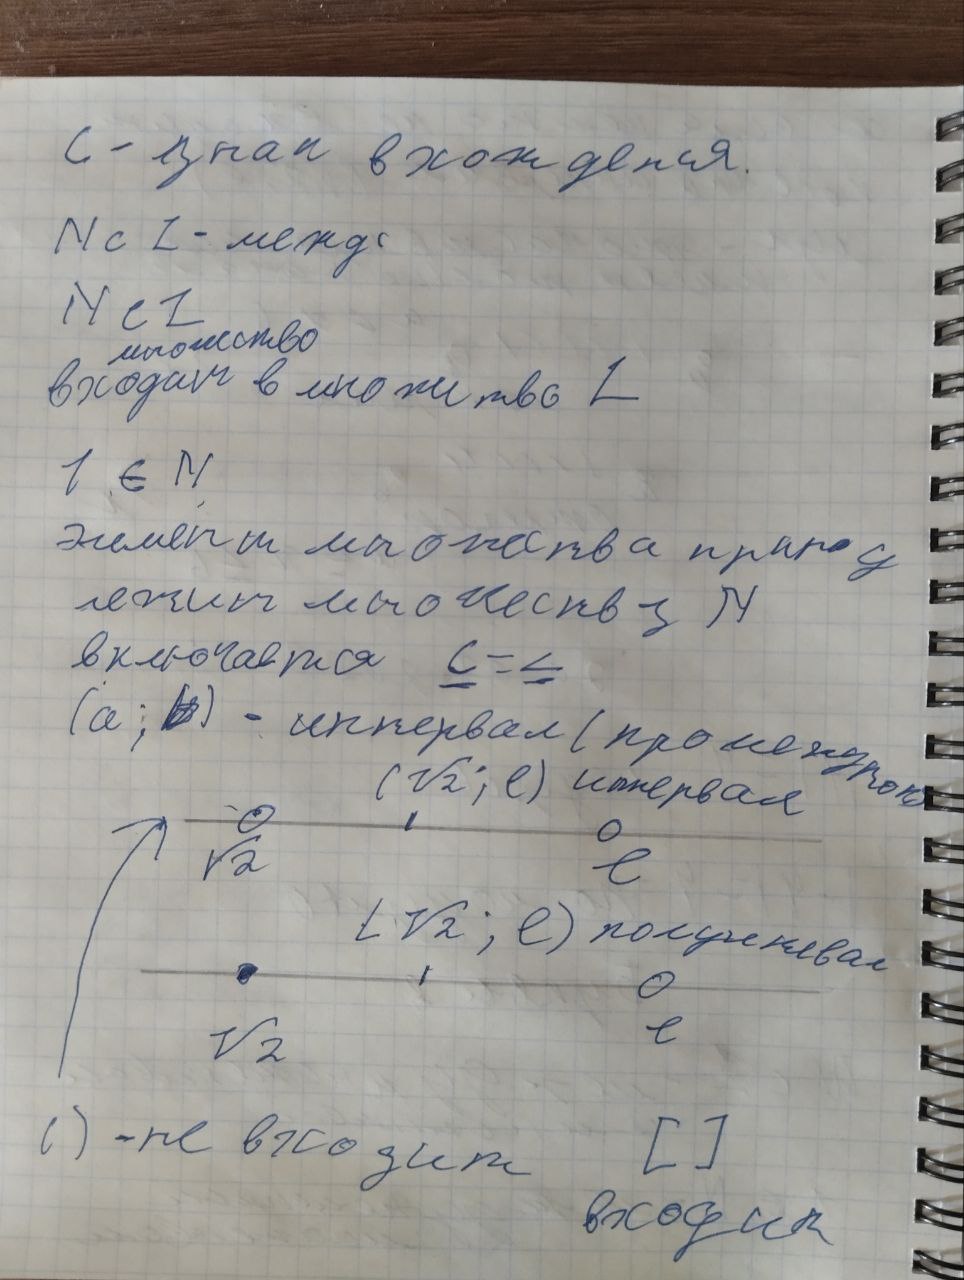 ⊂ - знак вхождения.
N ⊂ Z - межд
N ⊂ Z
множество
входит в множитво Z
1 ∈ N
элемент множества принад
лежит множеству N
включается ⊂ = ∠
(a; b) - интервал (промежуток
(√2; e) интервал
√2 e
[√2; e) полуинтвал
√2 e
( ) - не входит [ ]
входит